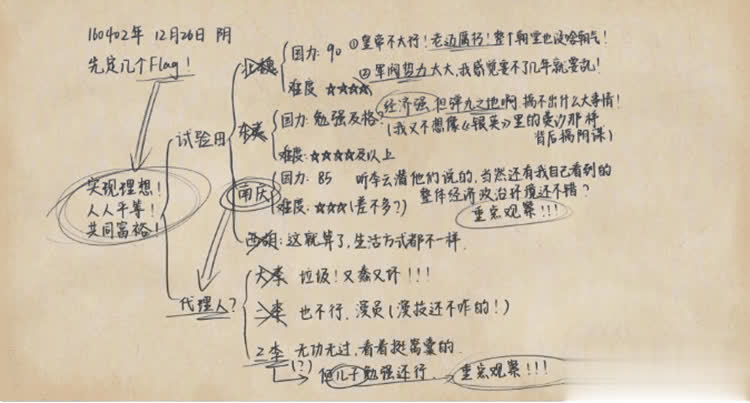 160402年 12月26日 阴
先定几个Flag!
实现理想!
人人平等!
共同富裕!
试验田
北魏
国力: 90 ①皇帝不大行!老迈腐朽!整个朝里也没啥朝气!
②军阀势力太大,我感觉要不了几年就要乱!
难度 ☆☆☆☆
东夷
国力: 勉强及格? 经济强 但弹丸之地啊.搞不出什么大事情!
(我又不想像《银英》里的费沙那样
背后搞阴谋)
难度: ☆☆☆☆及以上
南庆
国力: 85 听李云潜他们说的,当然还有我自己看到的
整体经济政治环境还不错?
难度: ☆☆☆(差不多?)
重点观察!!!
西胡: 这就算了,生活方式都不一样.
代理人?
大李 垃圾!又蠢又坏!!!
二李 也不行.演员(演技还不咋的!)
三李 无功无过,看着挺窝囊的.
(?)
但儿子勉强还行
重点观察!!!